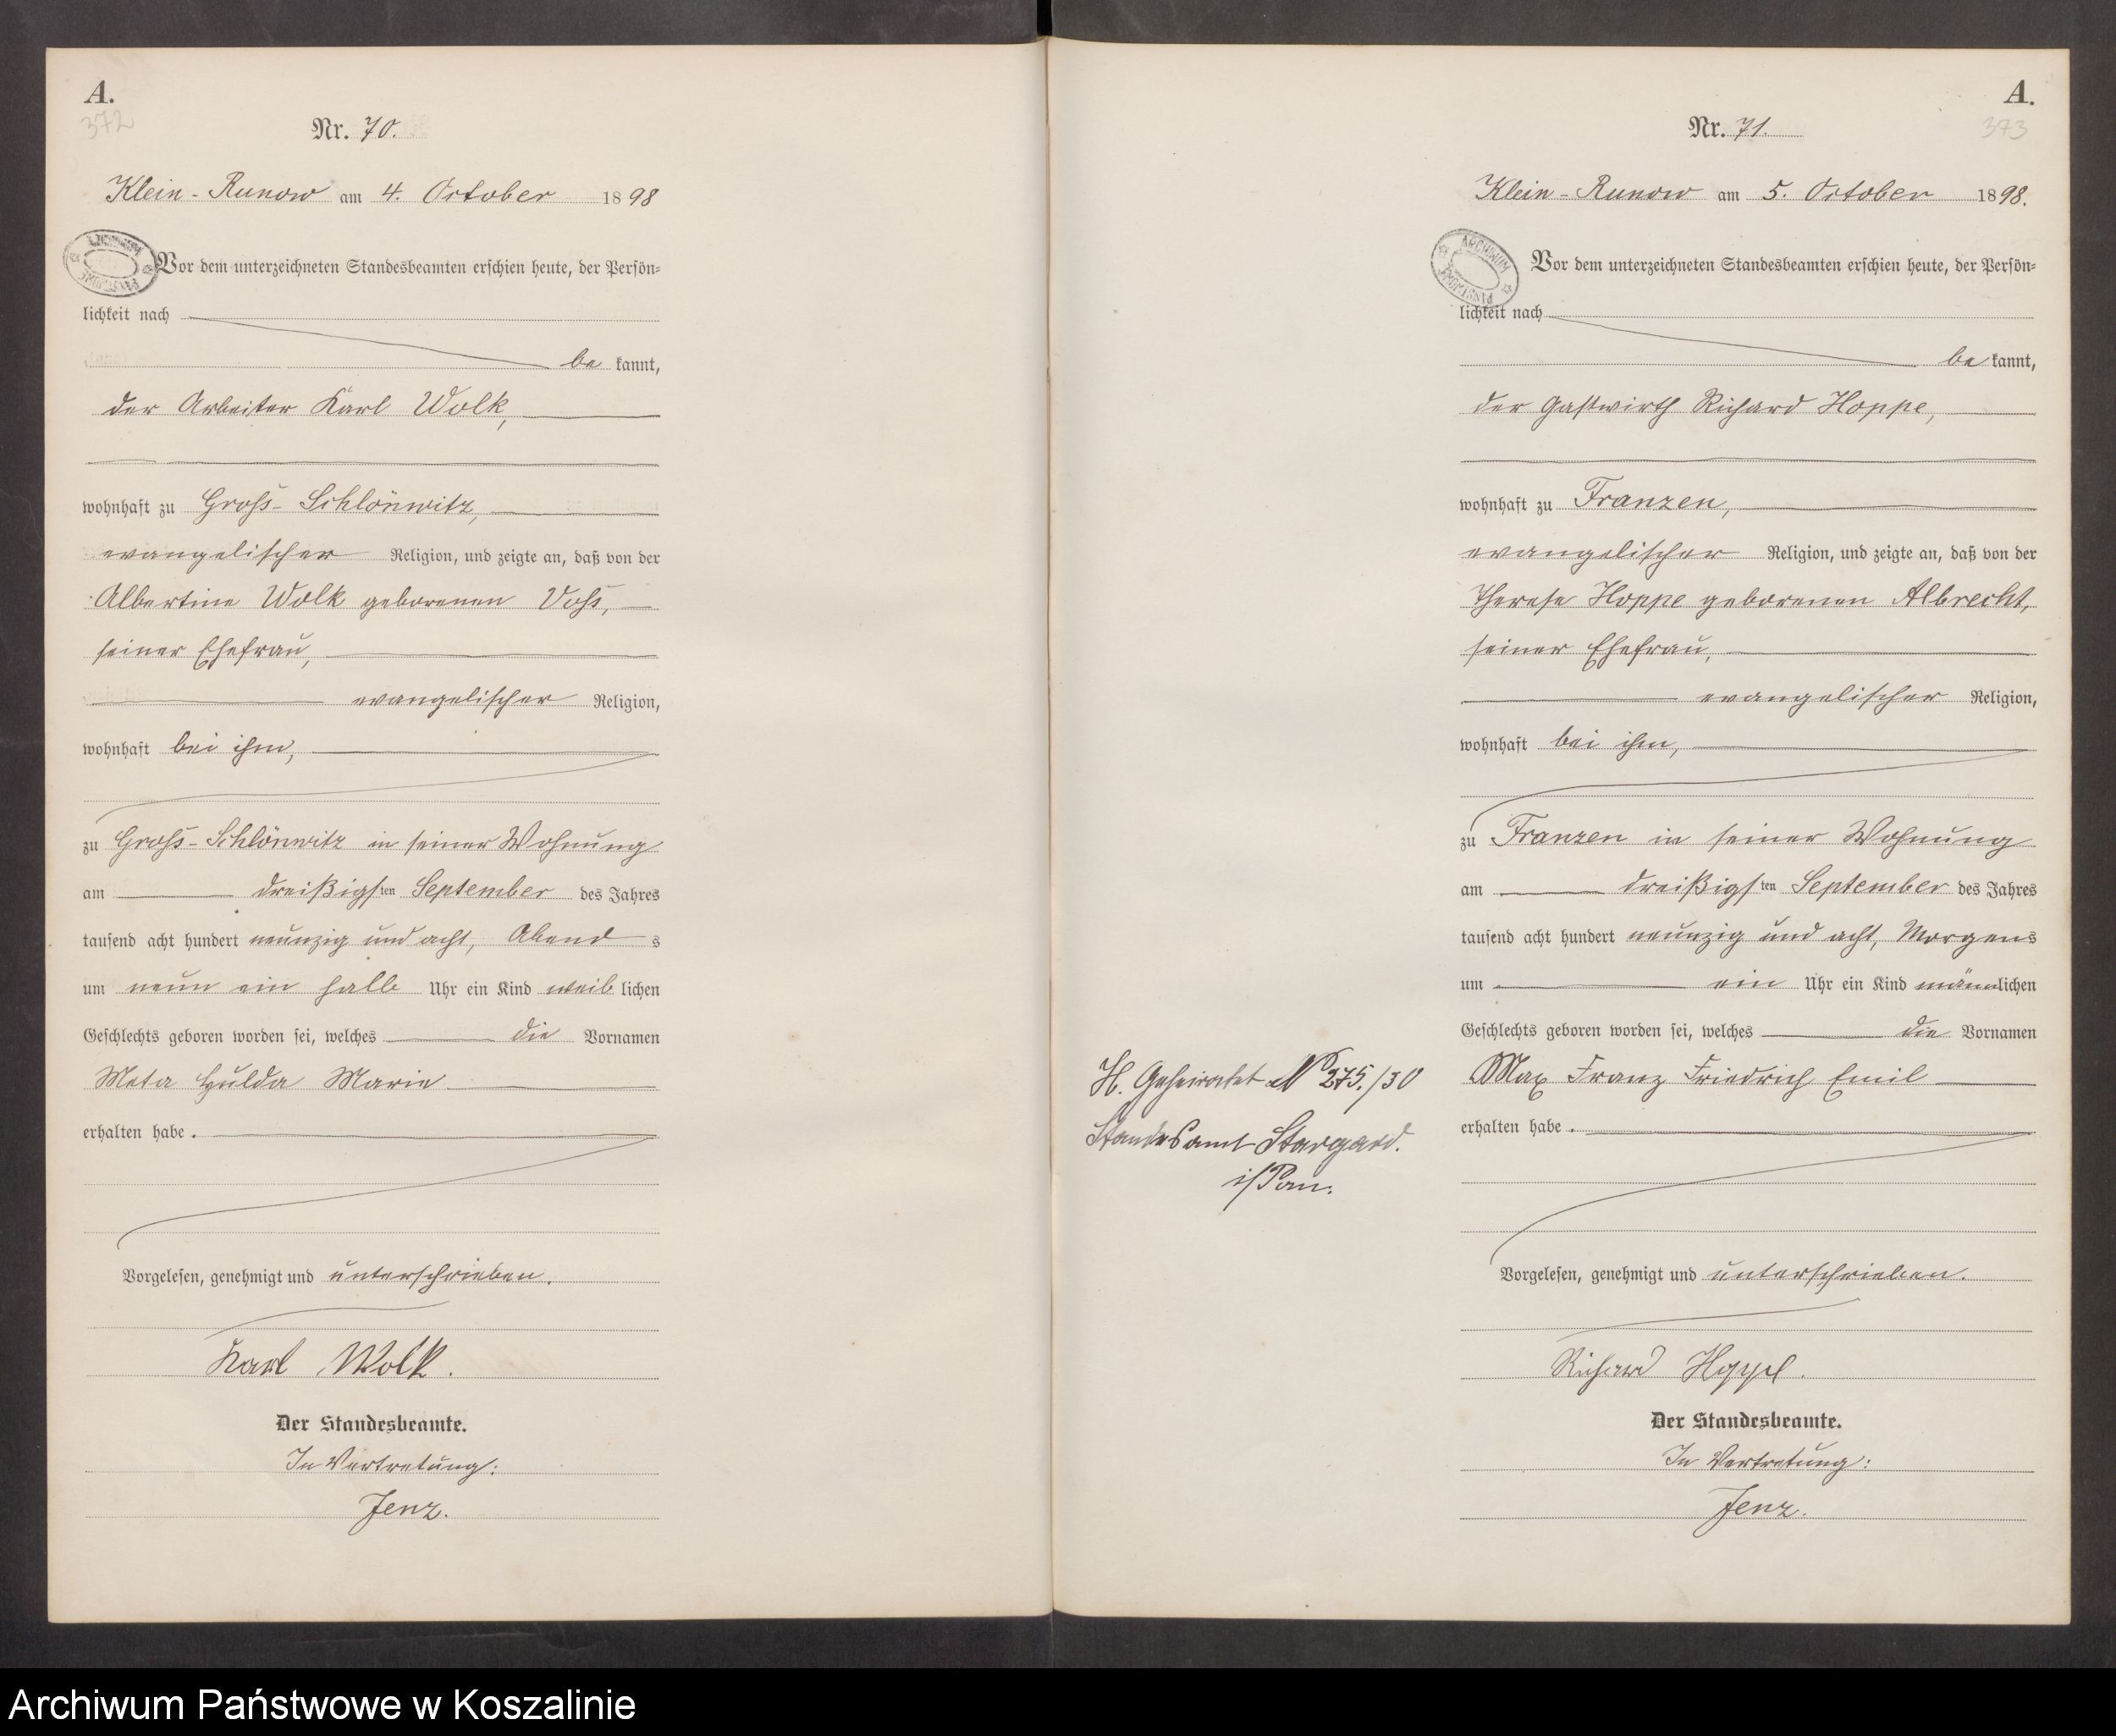 A.
372
Nr. 70.
Klein-Runow am 4. October 1898
ARCHIWUM PAŃSTWOWE
Vor dem unterzeichneten Standesbeamten erschien heute, der Persön=
lichkeit nach
be kannt,
der Arbeiter Karl Wolk,
wohnhaft zu Groß-Schlönwitz,
evangelischer Religion, und zeigte an, daß von der
Albertine Wolk geborenen Voß,
seiner Ehefrau,
evangelischer Religion,
wohnhaft bei ihm,
zu Groß-Schlönwitz in seiner Wohnung
am dreißigsten September des Jahres
tausend acht hundert neunzig und acht, Abends
um neun ein halb Uhr ein Kind weiblichen
Geschlechts geboren worden sei, welches die Vornamen
Meta Hulda Marie
erhalten habe.
Vorgelesen, genehmigt und unterschrieben.
Karl Wolk.
Der Standesbeamte.
In Vertretung:
Jenz.
A.
373
Nr. 71.
Klein-Runow am 5. October 1898.
ARCHIWUM PAŃSTWOWE
Vor dem unterzeichneten Standesbeamten erschien heute, der Persön=
lichkeit nach
be kannt,
der Gastwirth Richard Hoppe,
wohnhaft zu Franzen,
evangelischer Religion, und zeigte an, daß von der
Therese Hoppe geborenen Albrecht,
seiner Ehefrau,
evangelischer Religion,
wohnhaft bei ihm,
zu Franzen in seiner Wohnung
am dreißigsten September des Jahres
tausend acht hundert neunzig und acht, Morgens
um ein Uhr ein Kind männlichen
Geschlechts geboren worden sei, welches die Vornamen
Max Franz Friedrich Emil
erhalten habe.
H. Geheiratet No 275./30
Standesamt Stargard.
i/Pom.
Vorgelesen, genehmigt und unterschrieben.
Richard Hoppe.
Der Standesbeamte.
In Vertretung:
Jenz.
Archiwum Państwowe w Koszalinie